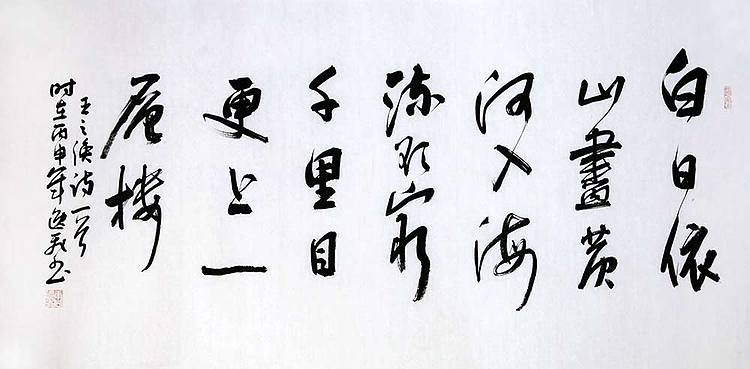 白日依
山畫黄
河入海
流欲窮
千里目
更上一
層楼
王之涣诗一首
时在丙申年逸书